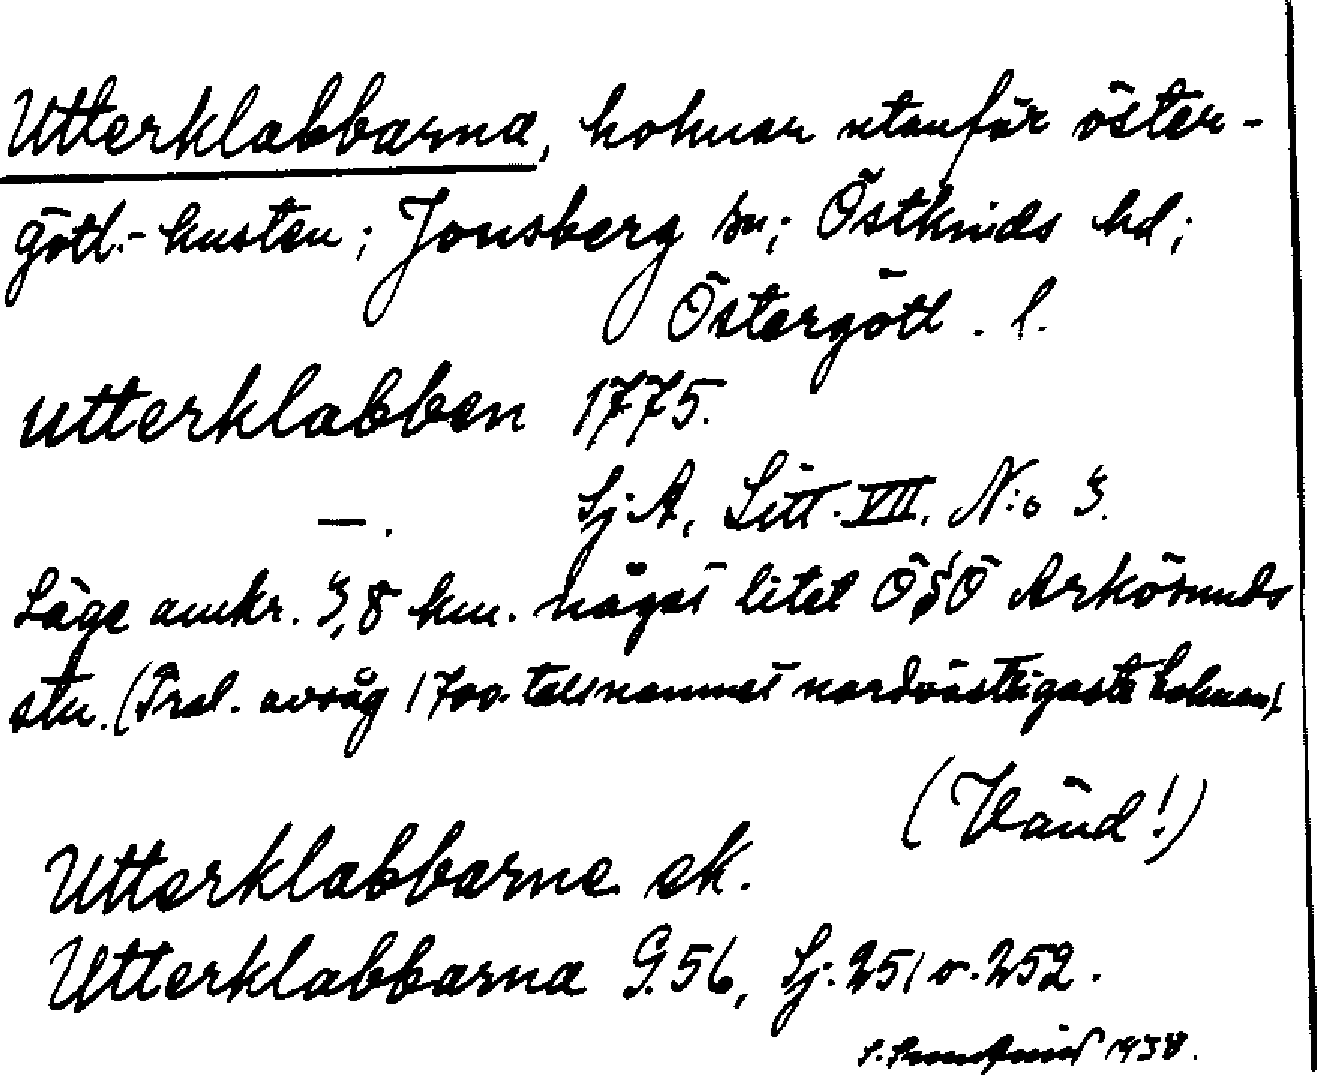 Utterklabbarna, holmar utanför öster-
götl.-kusten; Jonsberg sn; Östkinds hd;
Östergötl. l.
utterklabben 1775.
—. Sj.A, Litt. VII. N:o 3.
Läge omkr. 3,8 km. något litet OSO Arkösunds
stn. (Trol. avsåg 1700-talsnamnet nordvästligaste holmen).
(Vänd!)
Utterklabbarne ek.
Utterklabbarna G.56, Sj. 251 o. 252.
1938.